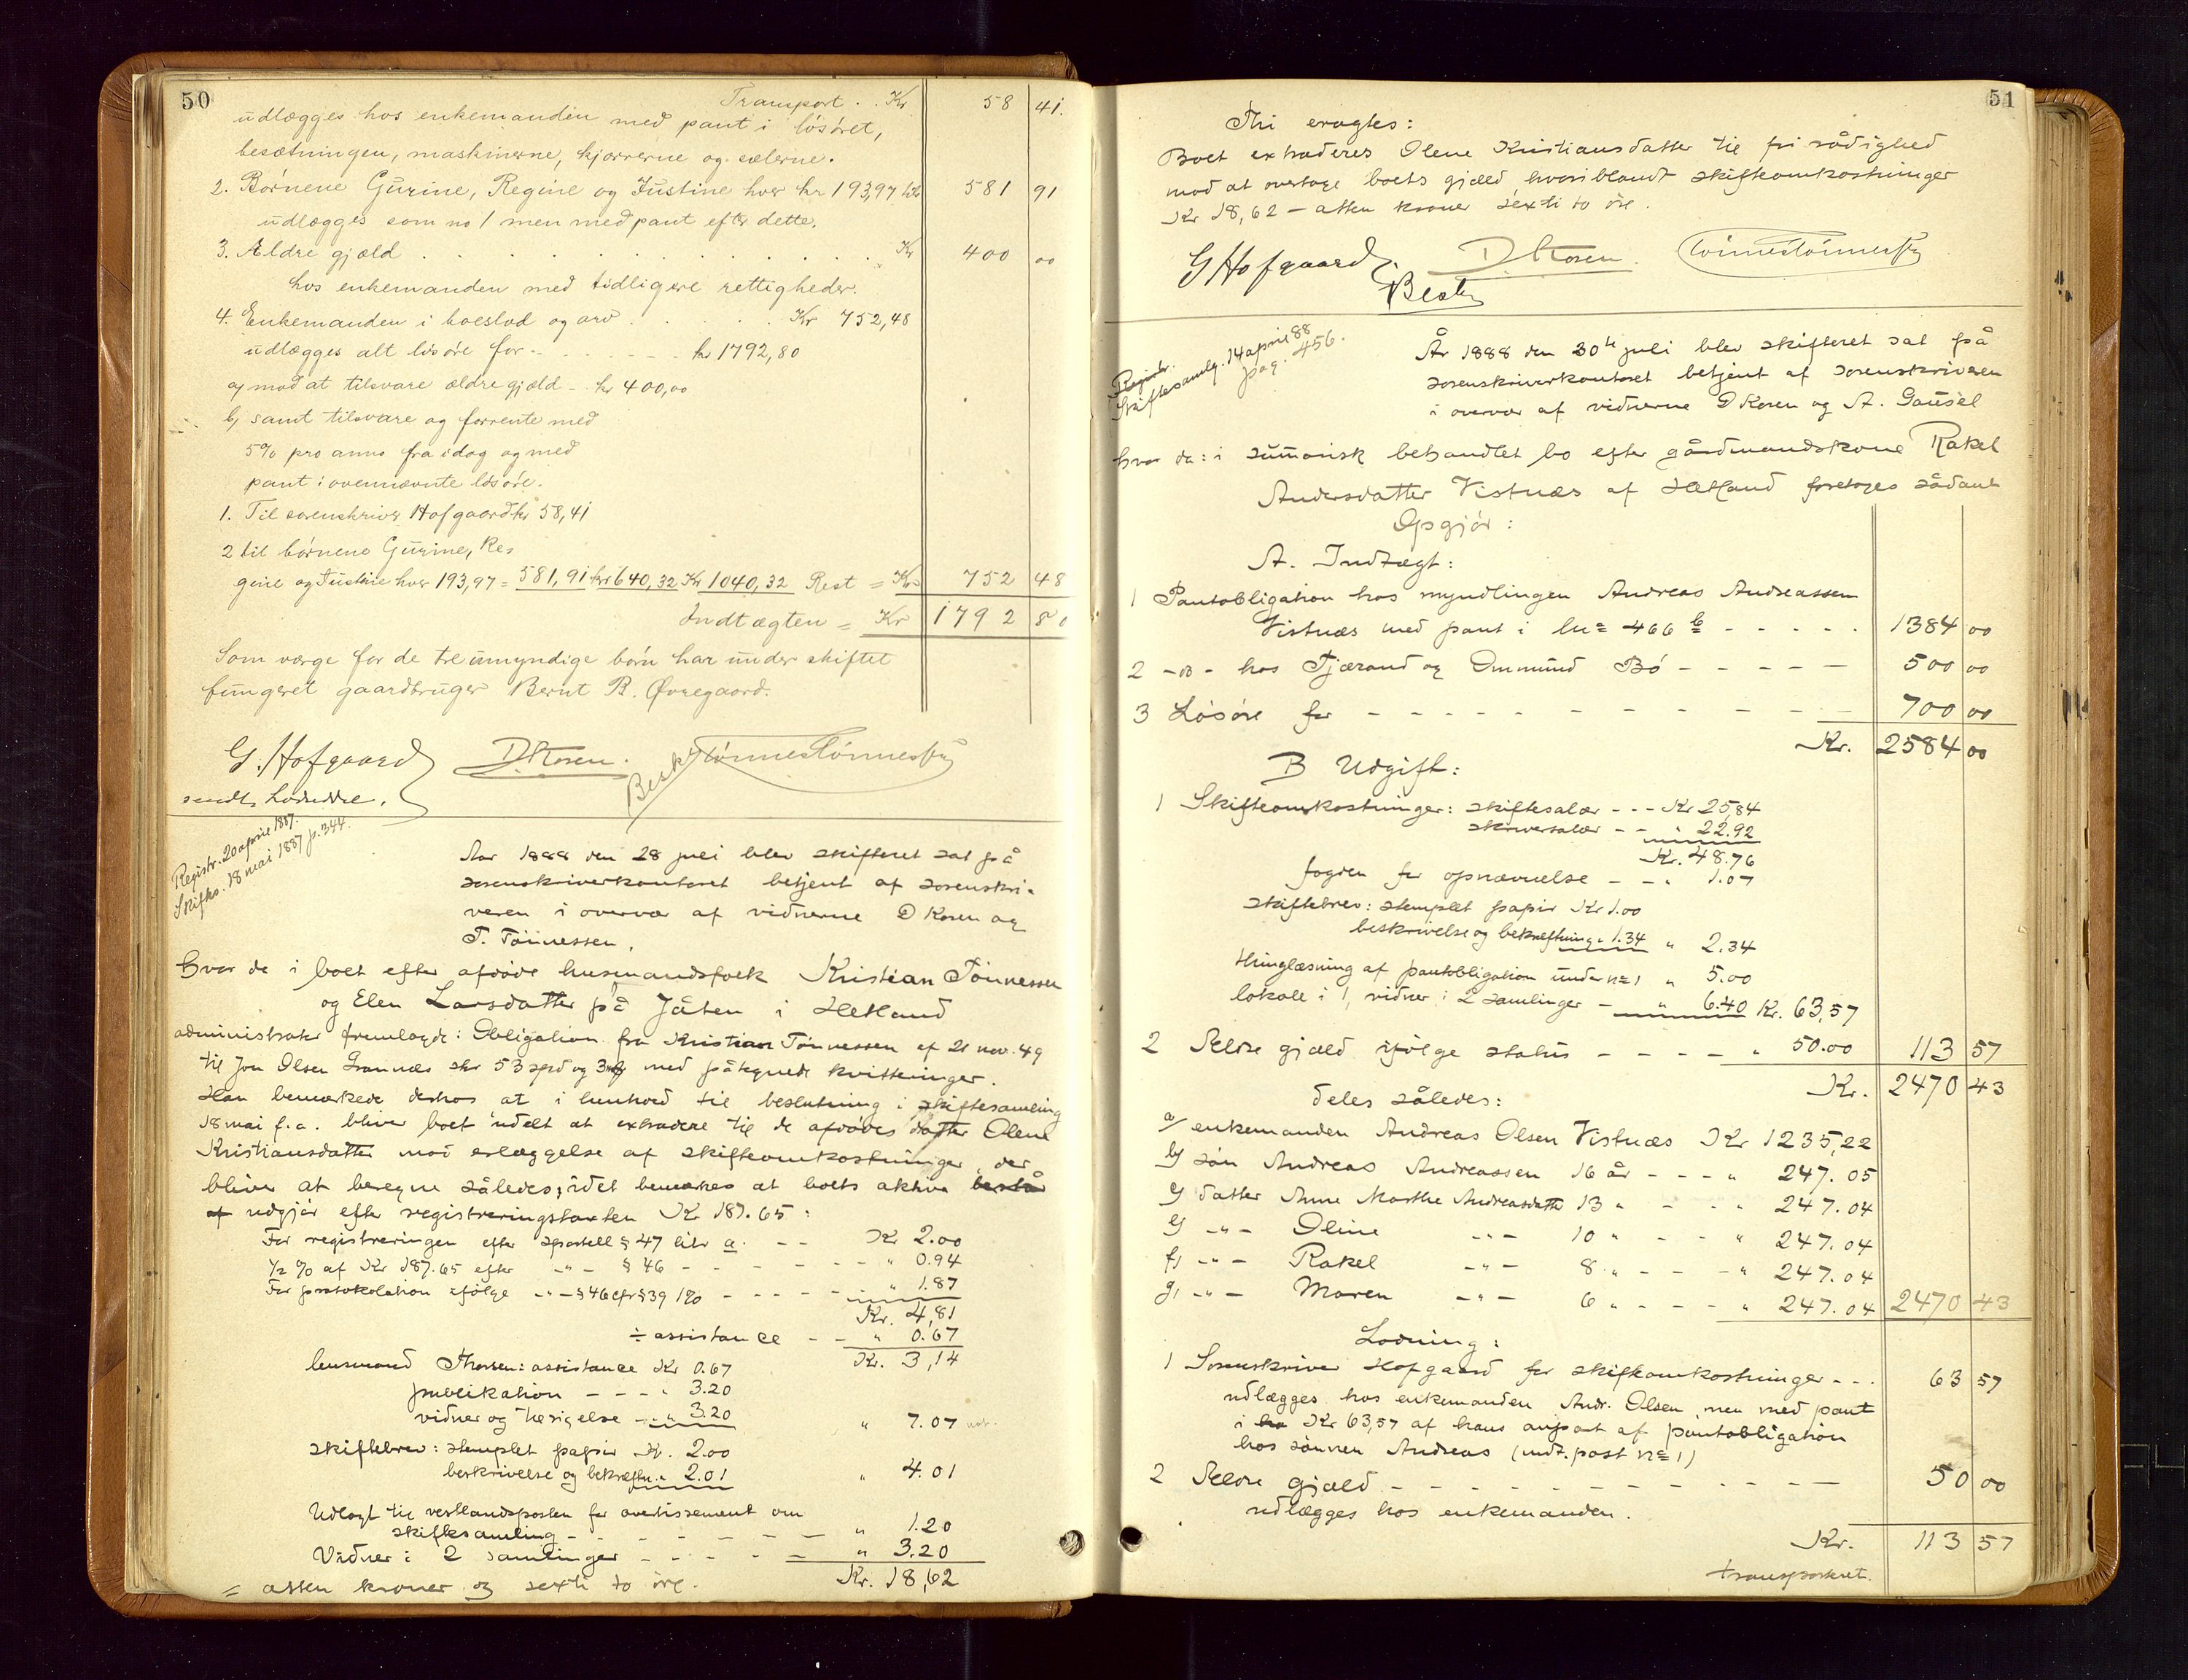 50
Transport . . Kr 58 41.
udlægges hos enkemanden med pant i løsøret,
besætningen, maskinerne, kjærrerne og sælerne.
2. Børnene Gurine, Regine og Justine hver kr 193,97 581 91
udlægges som no 1 men med pant efter dette.
3. Ældre gjæld . . . . . . . . . . Kr 400 00
hos enkemanden med tidligere rettigheder.
4. Enkemanden i boeslod og arv . . . . . Kr 752,48
udlægges alt løsøre for - - - - - kr 1792,80
og mod at tilsvare ældre gjæld - kr 400,00
b, samt tilsvare og forrente med
5% pro anno fra idag og med
pant i ovennævnte løsøre.
1. Til sorenskriver Hofgaard kr 58,41
2 til børnene Gurine, Re=
gine og Justine hver 193,97 = 581,91 kr 640,32 Kr 1040,32 Rest = Kr 752 48
Indtægten = Kr 1792 80
Som værge for de tre umyndige børn har under skiftet
fungeret gaardbruger Bernt B. Øvregaard.
G. Hofgaard DKosen. Tønnes Tønnessen
Besk
sendt Lodseddel.
Registr. 20 april 1887.
Skifts. 18 mai 1887 p. 344.
Aar 1888 den 28 juli blev skifteret sat på
sorenskriverkontoret betjent af sorenskri=
veren i overvær af vidnerne D Kosen og
T. Tönnessen.
Hvor da i boet efter afdøde husmandsfolk Kristian Tönnessen
og Elen Larsdatter på Jåten i Hetland
administrator fremlagde: Obligation fra Kristian Tönnessen af 21 nov. 49
til Jon Olsen Grannæs stor 53 spd og 3 med påtegnede kvitteringer.
Han bemærkede derhos at i henhold til beslutning i skiftesamling
18 mai f.a. bliver boet udelt at extradere til de afdødes datter Olene
Kristiansdatter mod erlæggelse af skifteomkostninger, der
bliver at beregne således, idet bemærkes at boets aktiva består
af udgjør efter registreringstaxten Kr 187.65 :
For registreringen efter sportell § 47 litr a. - - Kr 2.00
1/2 % af Kr 187.65 efter -"- § 46 - - - - - - " 0.94
For protokolation ifølge -"- § 46 cfr § 39 1% - - - - " 1.87
Kr. 4,81
÷ assistance - - " 0.67
Kr. 3,14
lensmand Thorsen: assistance Kr 0.67
publikation - - - " 3.20
vidner og tilsigelse - - " 3.20 " 7.07
skiftebrev: stemplet papir Kr. 2.00
beskrivelse og bekræftn. " 2.01 " 4.01
Udlagt til vestlandsposten for avertissement om
skiftesamling - - - - - - - " 1.20
Vidner i 2 samlinger - - - - - " 3.20
= atten kroner og sexti to øre. Kr. 18,62
51
Thi eragtes:
Boet extraderes Olene Kristiansdatter til fri rådighed
mod at overtage boets gjæld, hvoriblandt skifteomkostninger
Kr 18,62 - atten kroner sexti to øre.
G Hofgaard DKosen. Tønnes Tønnessen
Besk
Registr.
Skiftesamlg. 14 april 88
pag. 456.
År 1888 den 30te juli blev skifteret sat på
sorenskriverkontoret betjent af sorenskriveren
i overvær af vidnerne D Kosen og A. Gausel
hvor da: i summarisk behandlet bo efter gårdmandskone Rakel
Andersdatter Vistnæs af Hetland foretoges sådant
Opgjör:
A. Indtægt:
1 Pantobligation hos myndlingen Andreas Andreassen
Vistnæs med pant i ln= 466 b - - - - - 1384 00
2 -o- hos Tjærand og Ommund Bö - - - - - 500 00
3 Løsøre for - - - - - - - - - - 700 00
Kr. 2584 00
B Udgift:
1 Skifteomkostninger: skiftesalær - - - Kr 25,84
skriversalær - - " 22.92
Kr. 48.76
fogden for opnævnelse - - " 1.07
skiftebrev: stemplet papir Kr 1.00
beskrivelse og bekræftning " 1.34 " 2.34
thinglæsning af pantobligation under n= 1 " 5.00
lokale i 1, vidner i 2 samlinger - " 6.40 Kr. 63,57
2 Ældre gjæld ifølge status - - - - " 50.00 113 57
Kr. 2470 43
deles således:
a/ enkemanden Andreas Olsen Vistnæs Kr 1235,22
b/ søn Andreas Andreassen 16 år - - - " 247.05
c/ datter Anne Marthe Andreasdatter 13 " - - - " 247.04
e/ -"- Oline -"- 10 " - - " 247.04
f/ -"- Rakel -"- 8 " - - - " 247.04
g/ -"- Maren -"- 6 " - - - " 247.04 2470 43
Lodning:
1 Sorenskriver Hofgaard for skifteomkostninger - - - 63 57
udlægges hos enkemanden Andr. Olsen, men med pant
i Kr 63,57 af hans anpart af pantobligation
hos sønnen Andreas (indt. post n= 1)
2 Ældre gjæld - - - - - - - - - - 50 00
udlægges hos enkemanden.
Kr. 113 57
transporteret.